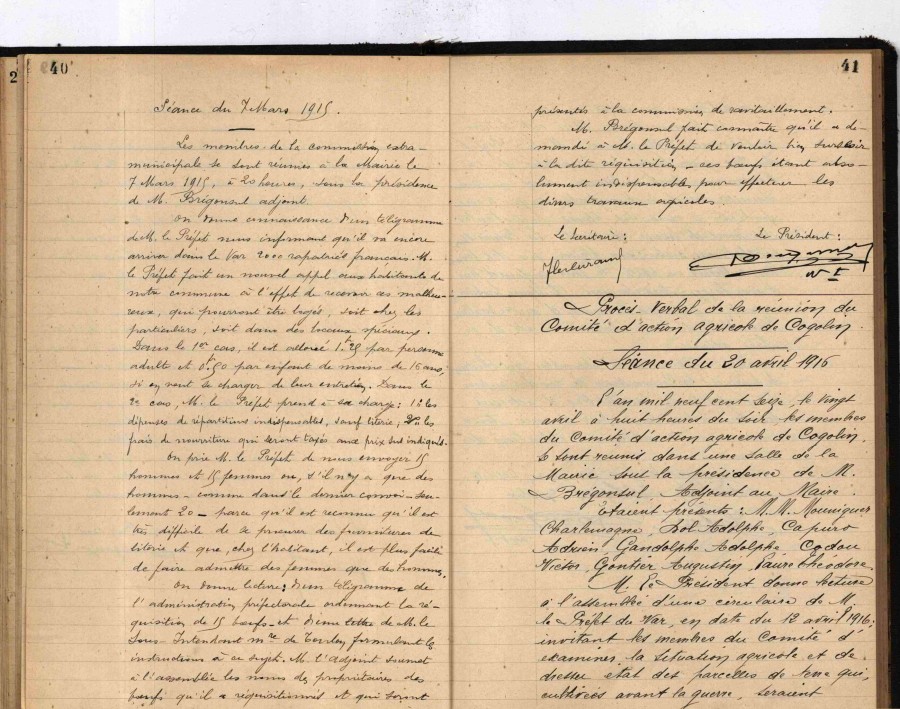 2
40
Séance du 7 Mars 1915.
Les membres de la commission extra-
municipale se sont réunies à la Mairie le
7 Mars 1915, à 20 heures, sous la présidence
de M. Brégonsul adjoint.
On donne connaissance d'un télégramme
de M. le Préfet nous informant qu'il va encore
arriver dans le Var 2000 rapatriés français. M.
le Préfet fait un nouvel appel aux habitants de
notre commune à l'effet de recevoir ces malheu-
reux, qui pourront être logés, soit chez les
particuliers, soit dans des locaux spéciaux.
Dans le 1er cas, il est alloué 1 fr 25 par personne
adulte et 0 fr 50 par enfant de moins de 16 ans,
si on veut se charger de leur entretien. Dans le
2e cas, M. le Préfet prend à sa charge : 1° les
dépenses de répartitions indispensables, sauf literie ; 2° les
frais de nourriture qui seront taxés aux prix sus indiqués.
On prie M. le Préfet de nous envoyer 15
hommes et 15 femmes ou, s'il n'y a que des
hommes - comme dans le dernier convoi - seu-
lement 20 - parce qu'il est reconnu qu'il est
très difficile de se procurer des fournitures de
literie et que, chez l'habitant, il est plus facile
de faire admettre des femmes que des hommes.
On donne lecture : d'un télégramme de
l'administration préfectorale ordonnant la ré-
quisition de 15 bœufs et d'une lettre de M. le
Sous-Intendant mre de Toulon formulant les
instructions à ce sujet. M. l'adjoint soumet
à l'assemblée les noms des propriétaires des
bœufs qu'il a réquisitionnés et qui seront
41
présentés à la commission de ravitaillement.
M. Brégonsul fait connaître qu'il a de-
mandé à M. le Préfet de vouloir bien surseoir
à la dite réquisition - ces bœufs étant abso-
lument indispensables pour effectuer les
divers travaux agricoles.
Le Secrétaire : Le Président :
Procès-Verbal de la réunion du
Comité d'action agricole de Cogolin.
Séance du 20 avril 1916
L'an mil neuf cent seize, le vingt
avril à huit heures du soir, les membres
du Comité d'action agricole de Cogolin,
se sont réunis dans une salle de la
Mairie sous la présidence de M.
Brégonsul, Adjoint au Maire.
Etaient présents : M.M. Mouniguer
Charlemagne, Bol Adolphe, Capuro
Adrien, Gandolphe Adolphe, Codou
Victor, Gontier Augustin, Faure Théodore.
M. Le Président donne lecture
à l'assemblée d'une circulaire de M.
le Préfet du Var, en date du 12 avril 1916,
invitant les membres du Comité d'
examiner la situation agricole et de
dresser état des parcelles de terre qui,
cultivées avant la guerre, seraient